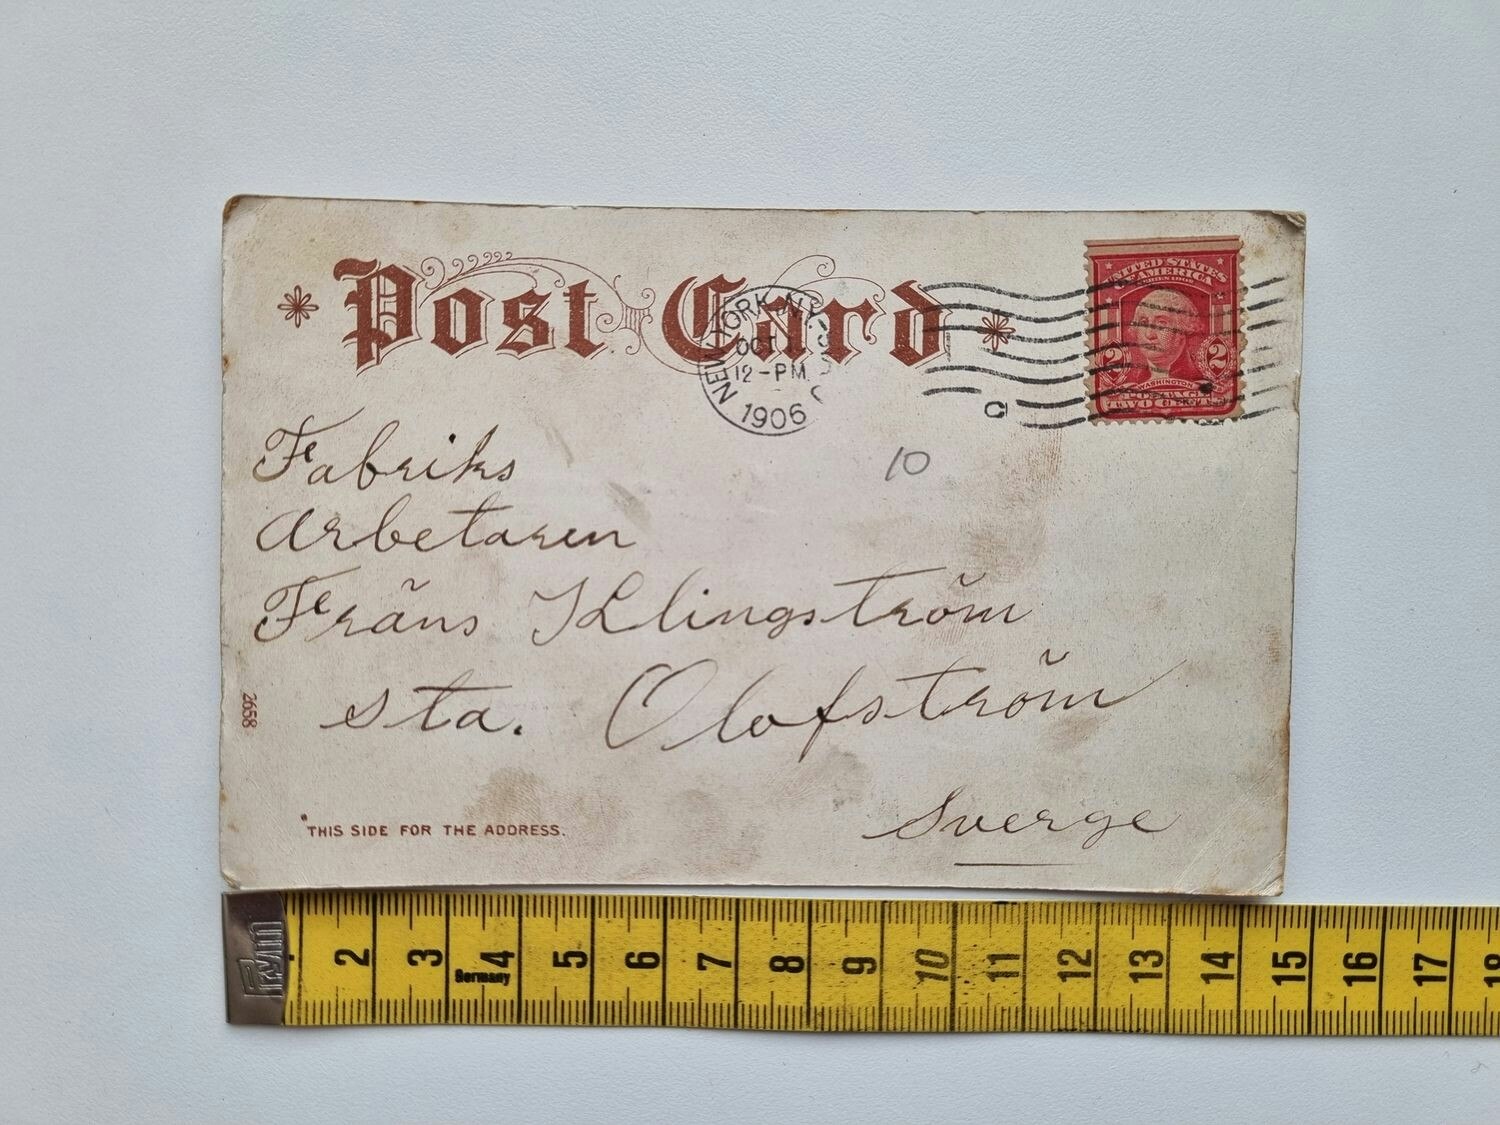 Post Card
NEW YORK, N.Y.
OCT
12-PM
1906
UNITED STATES
OF AMERICA
2 2
WASHINGTON
TWO CENTS
10
Fabriks
Arbetaren
Fräns Klingström
sta. Olofström
Sverge
2658
THIS SIDE FOR THE ADDRESS.
PRYM
2 3 4 5 6 7 8 9 10 11 12 13 14 15 16 17 18
Germany